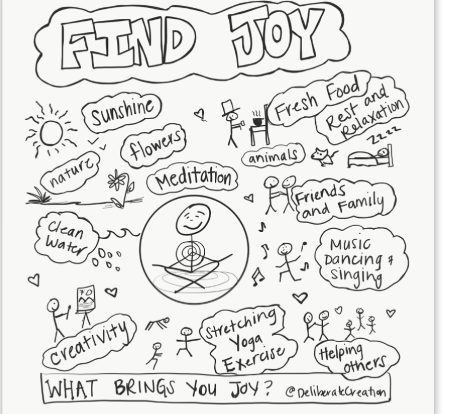 FIND JOY
Sunshine
Fresh Food
Rest and
Relaxation
flowers
zzzz
animals
nature
Meditation
Friends
and Family
Clean
Water
Music
Dancing &
Singing
Creativity
Stretching
Yoga
Exercise
Helping
others
WHAT BRINGS YOU JOY? @DeliberateCreation